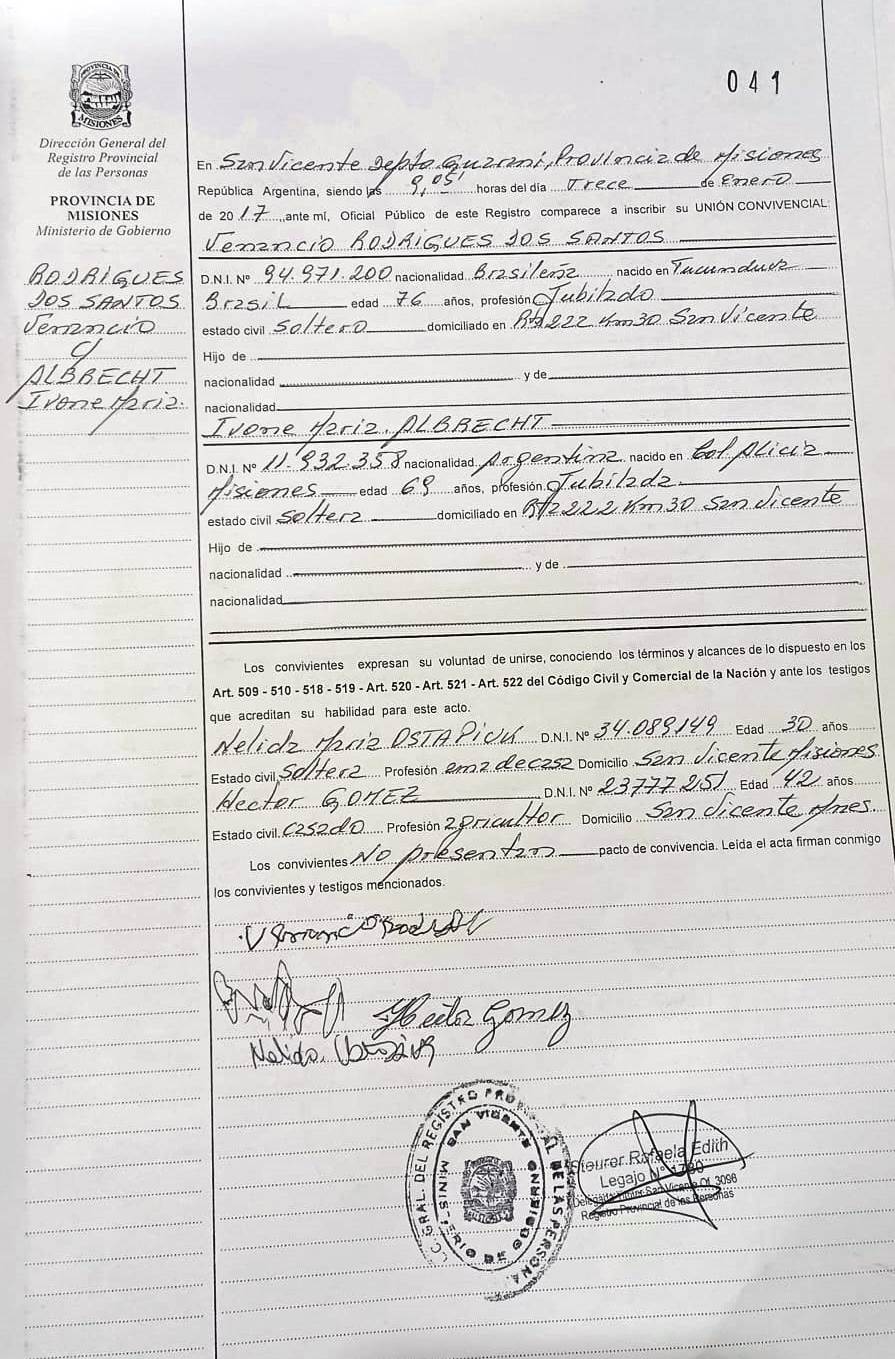 041
PROVINCIA DE
MISIONES
Dirección General del
Registro Provincial
de las Personas
PROVINCIA DE
MISIONES
Ministerio de Gobierno
RODRIGUES
DOS SANTOS
Venancio
c/
ALBRECHT
Ivone Maria.
En San Vicente Depto Guarani, Provincia de Misiones
República Argentina, siendo las 9,05 horas del día Trece de Enero
de 2017, ante mí, Oficial Público de este Registro comparece a inscribir su UNIÓN CONVIVENCIAL:
Venancio RODRIGUES DOS SANTOS
D.N.I. Nº 94.971.200 nacionalidad Brasileña nacido en Tucunduva
Brasil edad 76 años, profesión Jubilado
estado civil Soltero domiciliado en Rta 222 Km30 San Vicente
Hijo de
nacionalidad y de
nacionalidad
Ivone Maria. ALBRECHT
D.N.I. Nº 11.932.358 nacionalidad Argentina nacido en Col Alicia
Misiones edad 69 años, profesión Jubilada
estado civil Soltera domiciliado en Rta 222 Km30 San Vicente
Hijo de
nacionalidad y de
nacionalidad
Los convivientes expresan su voluntad de unirse, conociendo los términos y alcances de lo dispuesto en los
Art. 509 - 510 - 518 - 519 - Art. 520 - Art. 521 - Art. 522 del Código Civil y Comercial de la Nación y ante los testigos
que acreditan su habilidad para este acto.
Nelida Maria OSTAPIUK D.N.I. Nº 34.089149 Edad 30 años
Estado civil Soltera Profesión ama de casa Domicilio San Vicente Misiones
Hector GOMEZ D.N.I. Nº 23777251 Edad 42 años
Estado civil. casado Profesión agricultor Domicilio San Vicente Mnes.
Los convivientes No presentan pacto de convivencia. Leída el acta firman conmigo
los convivientes y testigos mencionados.
Hector Gomez
Nelida
GRAL. DEL REGISTRO PROVINCIAL DE LAS PERSONAS
SAN VICENTE
MINISTERIO DE GOBIERNO
Steurer Rafaela Edith
Legajo Nº 1780
Delegada Titular San Vicente Of. 3098
Registro Provincial de las Personas